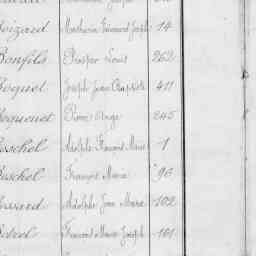 Boizard Mathurin Edouard Joseph 14
Bonfils Prosper Louis 262
Boquet Joseph Jean Baptiste 411
Pierre Ange 245
Boschel Adolphe François Marie 1
Boschel François Marie 96
Bossard Adolphe Jean Marie 102
François Marie Joseph 101